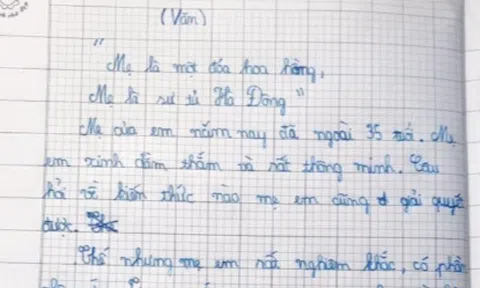 (Văn)
"
Mẹ là một đóa hoa hồng,
Mẹ là sư tử Hà Đông"
Mẹ của em năm nay đã ngoài 35 tuổi. Mẹ
em xinh đằm thắm và rất thông minh. Câu
hỏi về kiến thức nào mẹ em cũng giải quyết
được.
Thế nhưng mẹ em rất nghiêm khắc, có phần